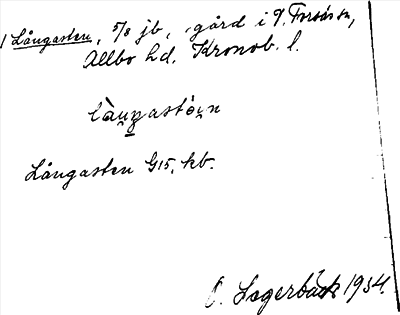 1 Långasten, 5/8 jb, gård i V. Torsås sn,
Allbo hd. Kronob. l.
Långasten G15, kb.
O. Lagerbäck 1934.